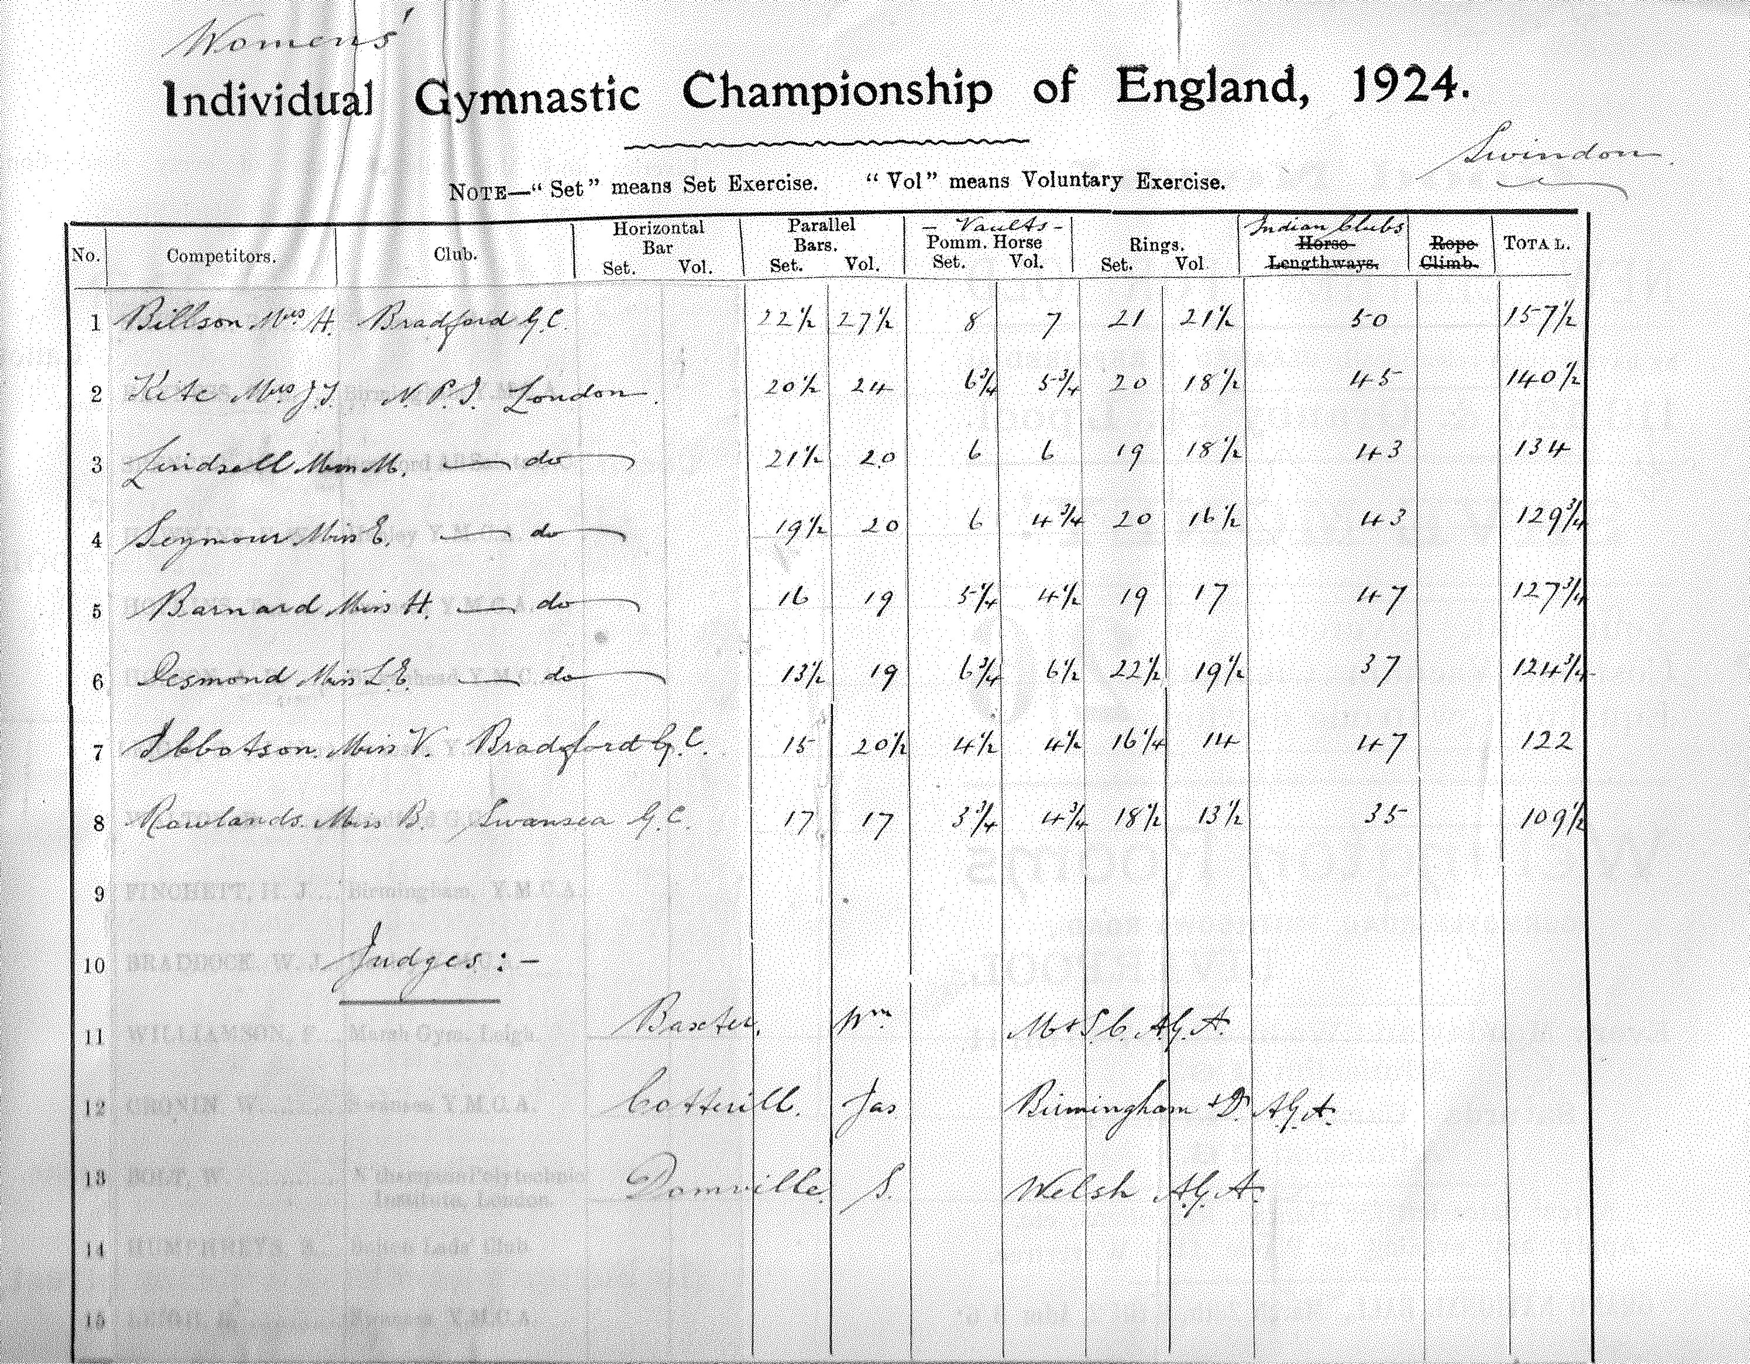 Womens'
Individual Gymnastic Championship of England, 1924.
Swindon.
NOTE—"Set" means Set Exercise. "Vol" means Voluntary Exercise.
No. Competitors. Club. Horizontal Bar Set. Vol. Parallel Bars. Set. Vol. - Vaults - Pomm. Horse Set. Vol. Rings. Set. Vol Indian Clubs Horse Lengthways. Rope Climb. TOTAL.
1 Billson Mrs H. Bradford G.C. 22½ 27½ 8 7 21 21½ 50 157½
2 Kite Mrs J.T. N.P.I. London. 20½ 24 6¾ 5¾ 20 18½ 45 140½
3 Lindsell Miss M. — do — 21½ 20 6 6 19 18½ 43 134
4 Seymour Miss E. — do — 19½ 20 6 4¾ 20 16½ 43 129¾
5 Barnard Miss H. — do — 16 19 5¼ 4½ 19 17 47 127¾
6 Desmond Miss L.E. — do — 13½ 19 6¾ 6½ 22½ 19½ 37 124¾
7 Ibbotson. Miss V. Bradford G.C. 15 20½ 4½ 4½ 16¼ 14 47 122
8 Rowlands. Miss B. Swansea G.C 17 17 3¾ 4¾ 18½ 13½ 35 109½
9 FINCHETT, H. J... Birmingham, Y.M.C.A.
10 BRADDOCK, W. J. Judges :-
11 WILLIAMSON, F... Marsh Gym. Leigh. Baxter, Wm M & S.C. A.G.A.
12 CRONIN, W. ...... Swansea Y.M.C.A. Cotterill. Jas Birmingham & D. A.G.A.
13 BOLT, W. .......... N'thampton Polytechnic Institute, London. Domville. S. Welsh A.G.A.
14 HUMPHREYS, S... Lads' Club
15 Y.M.C.A.